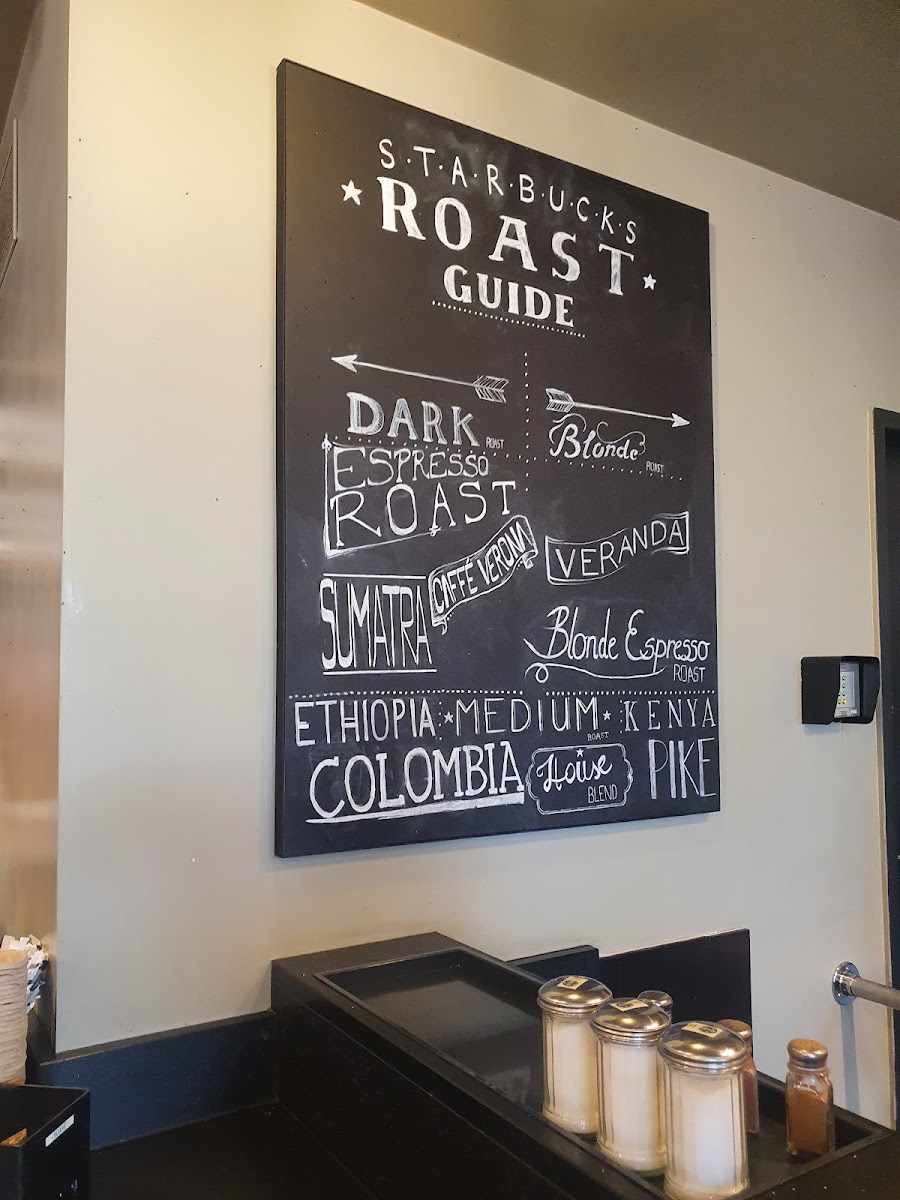 S·T·A·R·B·U·C·K·S
ROAST
GUIDE
DARK ROAST
ESPRESSO
ROAST
CAFFÉ VERONA
SUMATRA
Blonde ROAST
VERANDA
Blonde Espresso
ROAST
ETHIOPIA MEDIUM ROAST KENYA
COLOMBIA House BLEND PIKE